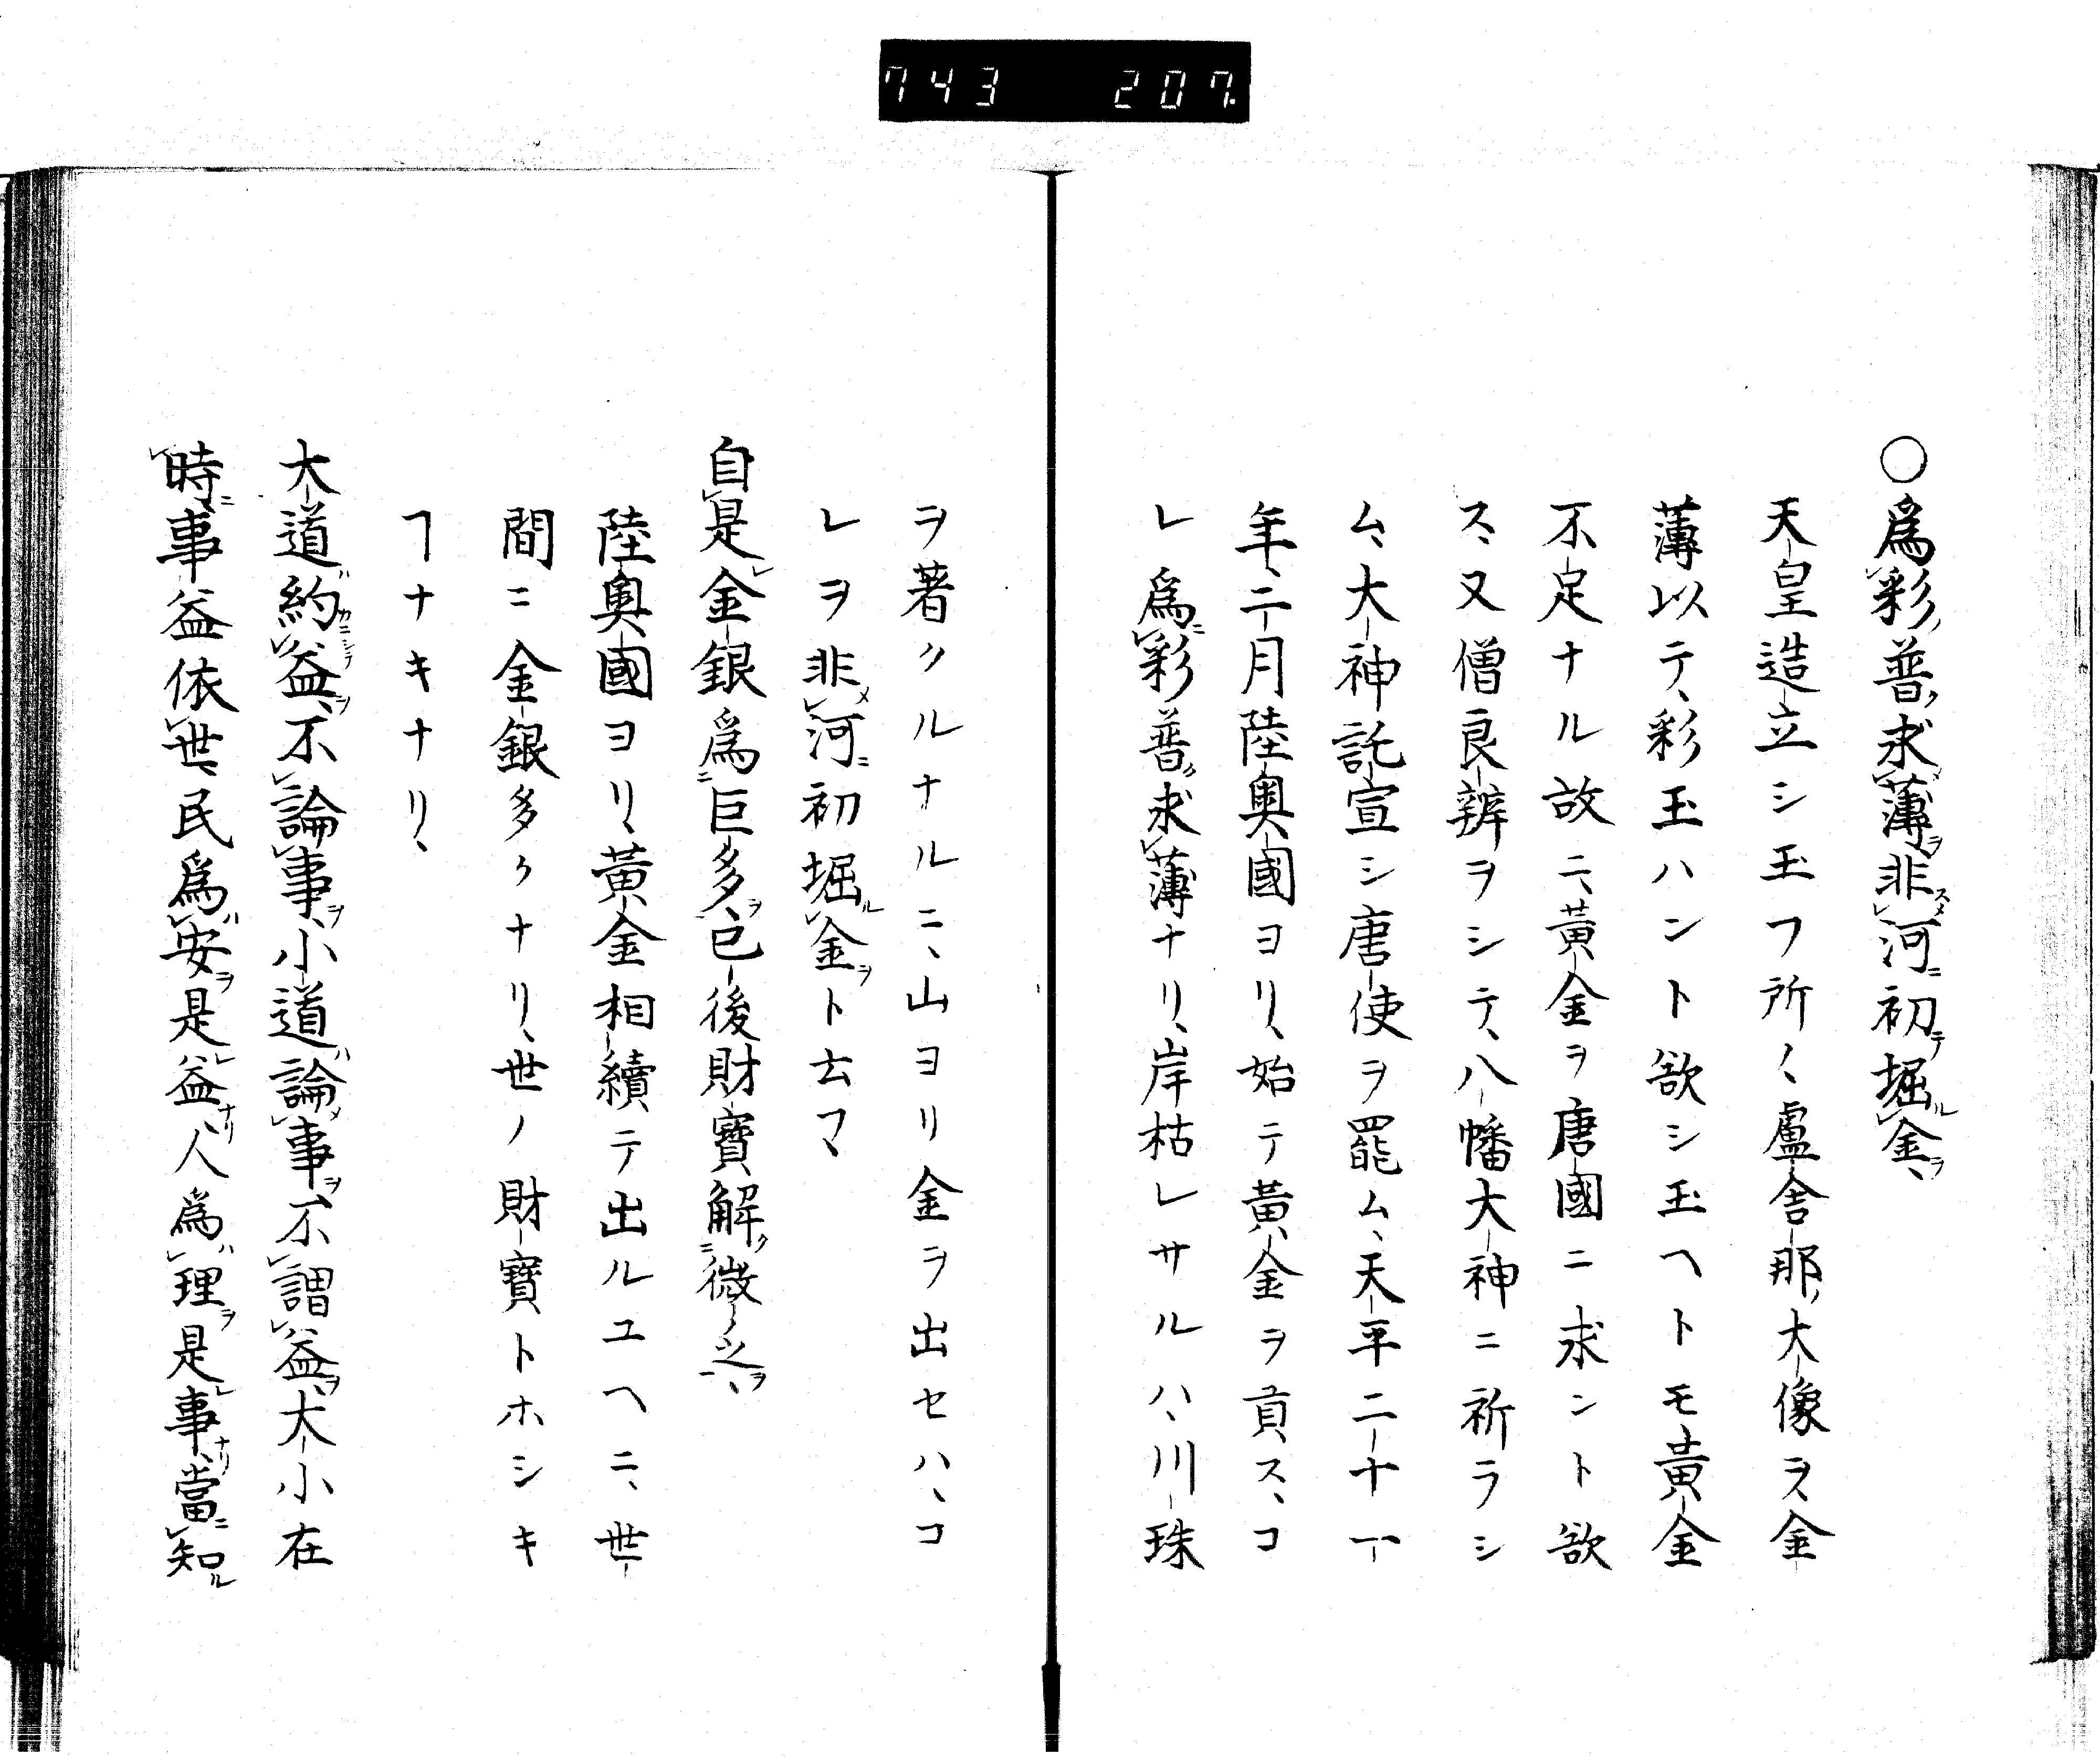 743 207.
○爲彩普求薄非河初堀金、
天皇造立シ玉フ所ノ、盧舎那大像ヲ、金
薄以テ、彩玉ハント欲シ玉ヘトモ黄金
不足ナル故ニ、黄金ヲ唐國ニ求ント欲
ス、又僧良辨ヲシテ、八幡大神ニ祈ラシ
ム、大神託宣シ唐使ヲ罷ム、天平二十一
年、二月陸奥國ヨリ、始テ黄金ヲ貢ス、コ
レ爲彩普求薄ナリ、岸枯レサルハ、川珠
ヲ著クルナルニ、山ヨリ金ヲ出セハ、コ
レヲ非河初堀金ト云フ、
自是金銀爲巨多、已後財寶解微之、
陸奥國ヨリ、黄金相續テ出ルユヘニ、世
間ニ金銀多クナリ、世ノ財寶トホシキ
ヿナキナリ、
大道約益、不論事、小道論事、不謂益、大小在
時事益依世、民爲安是益、人爲理是事、當知